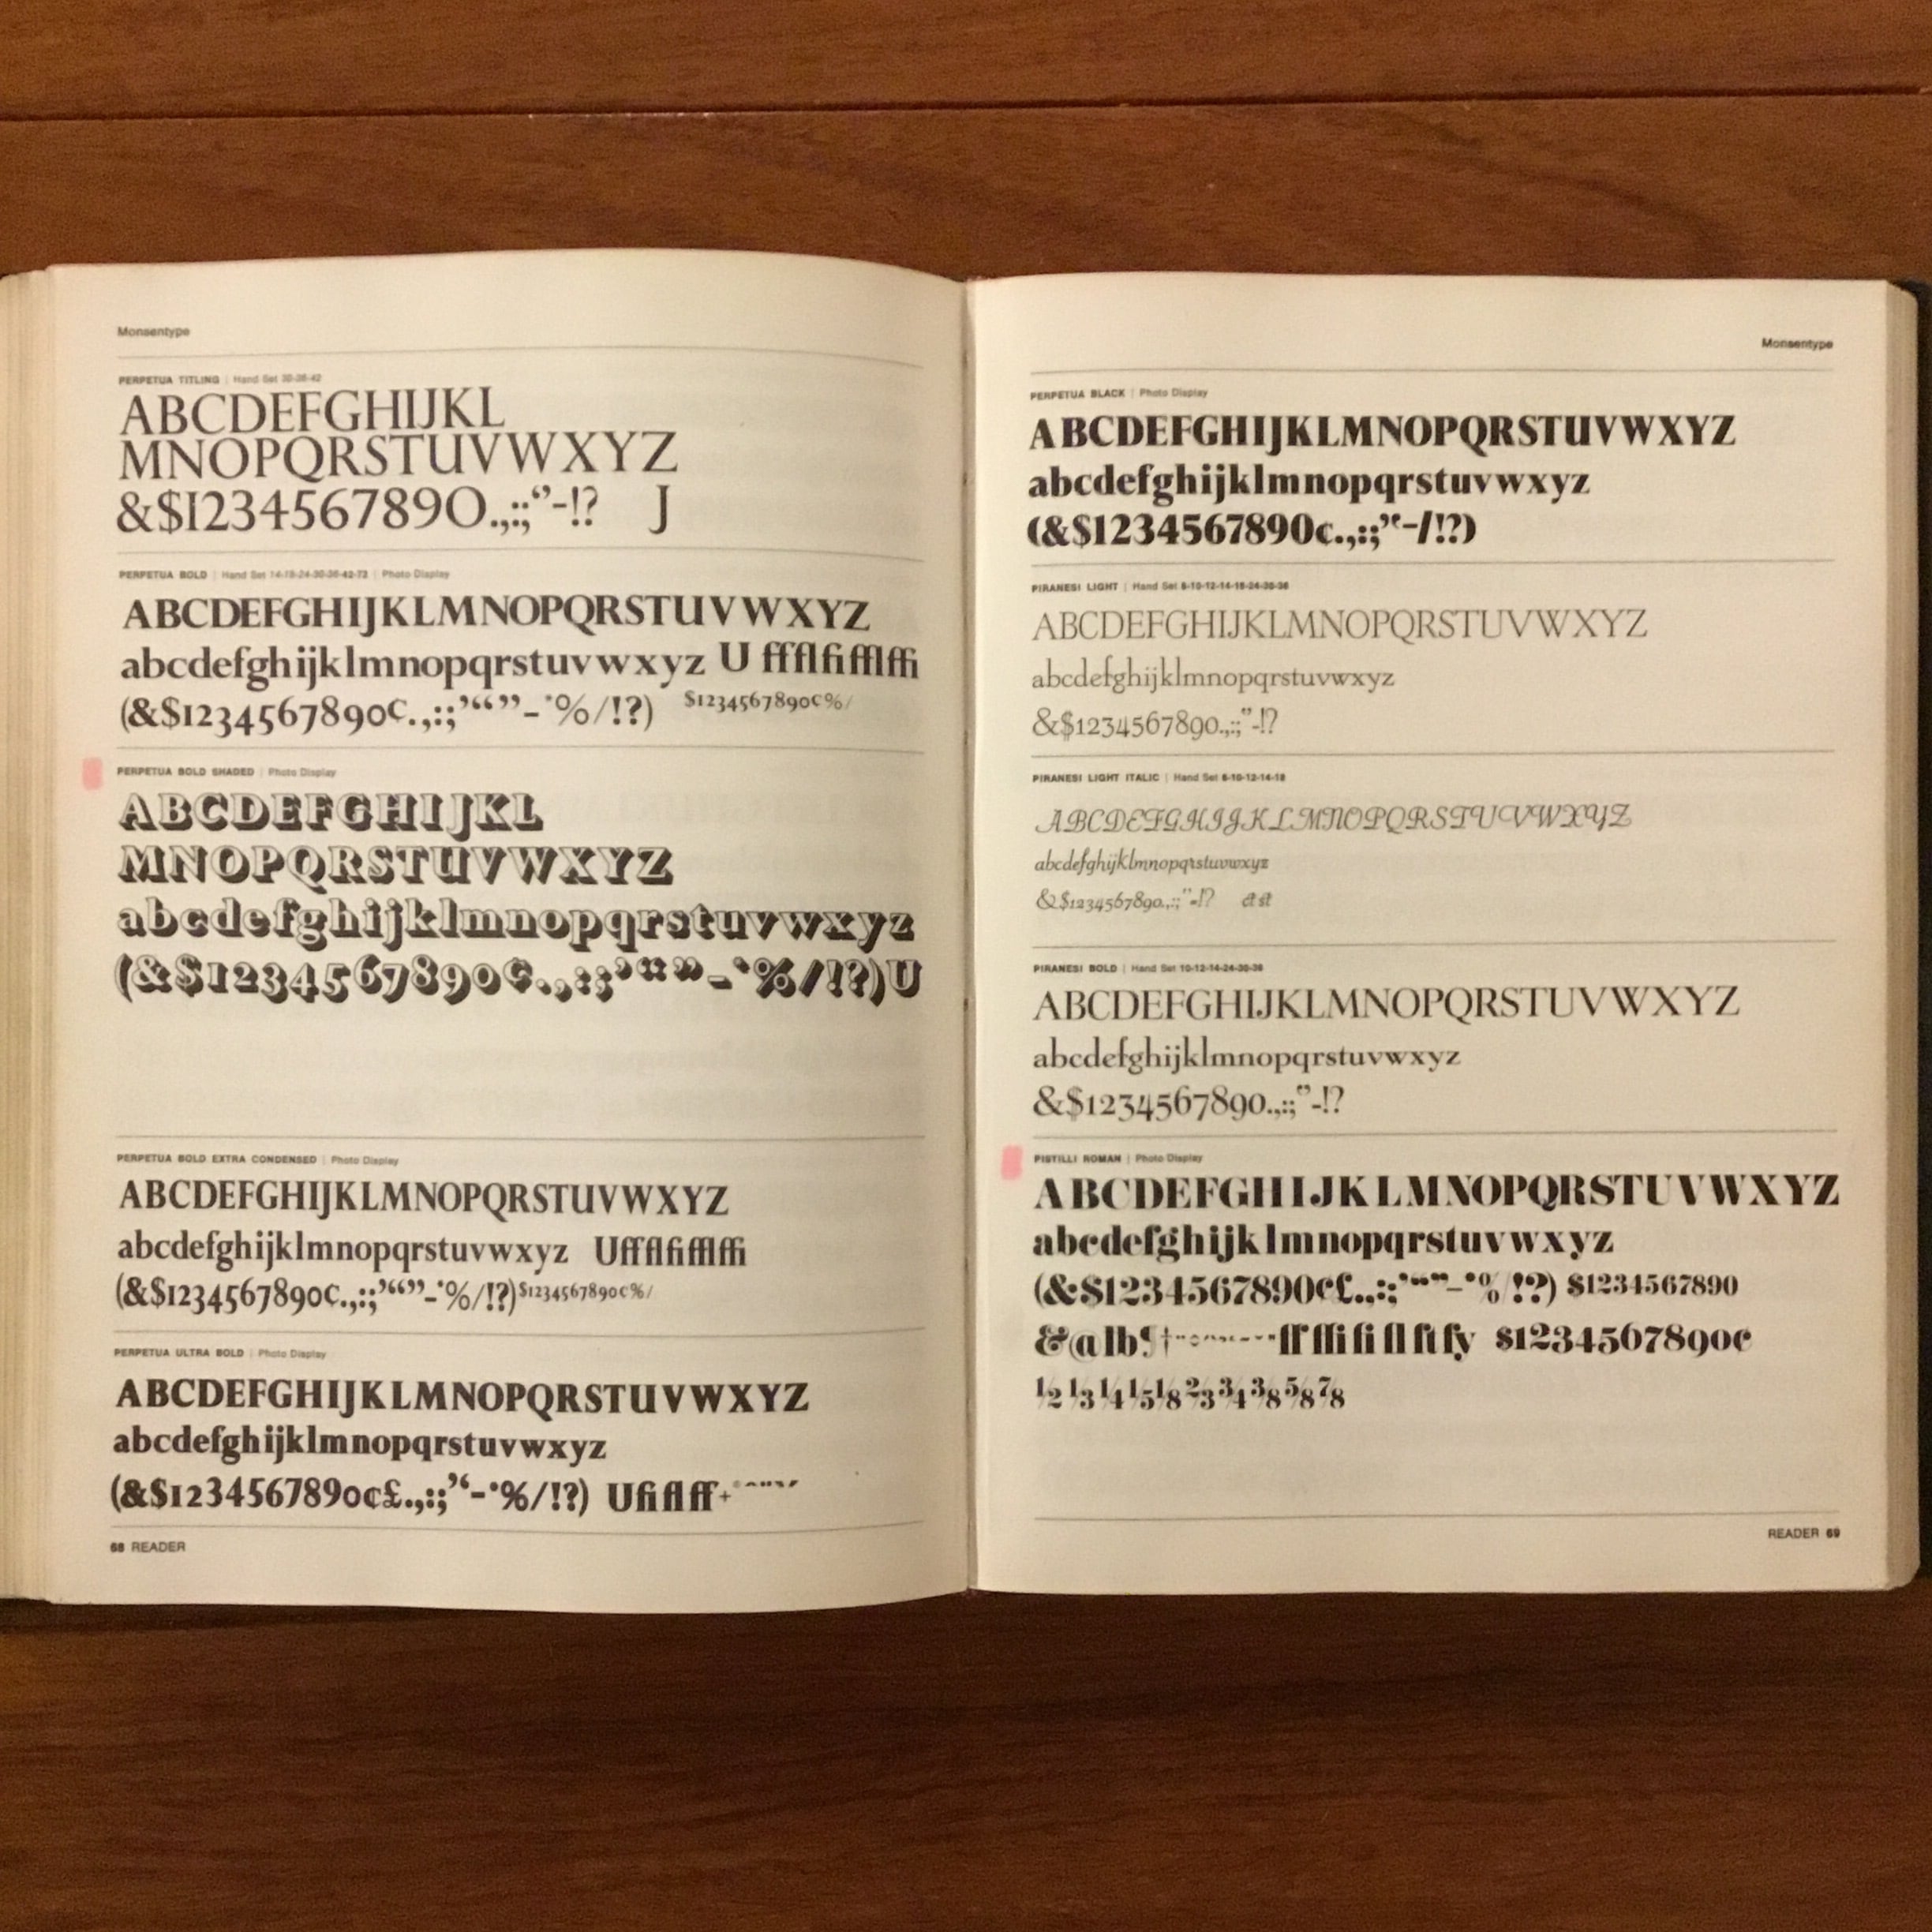 Monsentype
PERPETUA TITLING | Hand Set 30-36-42
ABCDEFGHIJKL
MNOPQRSTUVWXYZ
&$1234567890.,:;‘’-!? J
PERPETUA BOLD | Hand Set 14-18-24-30-36-42-72 | Photo Display
ABCDEFGHIJKLMNOPQRSTUVWXYZ
abcdefghijklmnopqrstuvwxyz U ffflfifflffi
(&$1234567890¢.,:;’“”-*%/!?) $1234567890¢%/
PERPETUA BOLD SHADED | Photo Display
ABCDEFGHIJKL
MNOPQRSTUVWXYZ
abcdefghijklmnopqrstuvwxyz
(&$1234567890¢.,:;’“”-*%/!?)U
PERPETUA BOLD EXTRA CONDENSED | Photo Display
ABCDEFGHIJKLMNOPQRSTUVWXYZ
abcdefghijklmnopqrstuvwxyz Uffflfifflffi
(&$1234567890¢.,:;’“”-*%/!?)$1234567890¢%/
PERPETUA ULTRA BOLD | Photo Display
ABCDEFGHIJKLMNOPQRSTUVWXYZ
abcdefghijklmnopqrstuvwxyz
(&$1234567890¢£.,:;’‘-*%/!?) Ufiflff+
68 READER
Monsentype
PERPETUA BLACK | Photo Display
ABCDEFGHIJKLMNOPQRSTUVWXYZ
abcdefghijklmnopqrstuvwxyz
(&$1234567890¢.,:;’‘-/!?)
PIRANESI LIGHT | Hand Set 8-10-12-14-18-24-30-36
ABCDEFGHIJKLMNOPQRSTUVWXYZ
abcdefghijklmnopqrstuvwxyz
&$1234567890.,:;”-!?
PIRANESI LIGHT ITALIC | Hand Set 8-10-12-14-18
ABCDEFGHIJKLMNOPQRSTUVWXYZ
abcdefghijklmnopqrstuvwxyz
&$1234567890.,:;”-!? ct st
PIRANESI BOLD | Hand Set 10-12-14-24-30-36
ABCDEFGHIJKLMNOPQRSTUVWXYZ
abcdefghijklmnopqrstuvwxyz
&$1234567890.,:;”-!?
PISTILLI ROMAN | Photo Display
ABCDEFGHIJKLMNOPQRSTUVWXYZ
abcdefghijklmnopqrstuvwxyz
(&$1234567890¢£.,:;’“”-*%/!?) $1234567890
&@lb¶† ff ffi fi fl ft fy $1234567890¢
1/2 1/3 1/4 1/5 1/8 2/3 3/4 3/8 5/8 7/8
READER 69